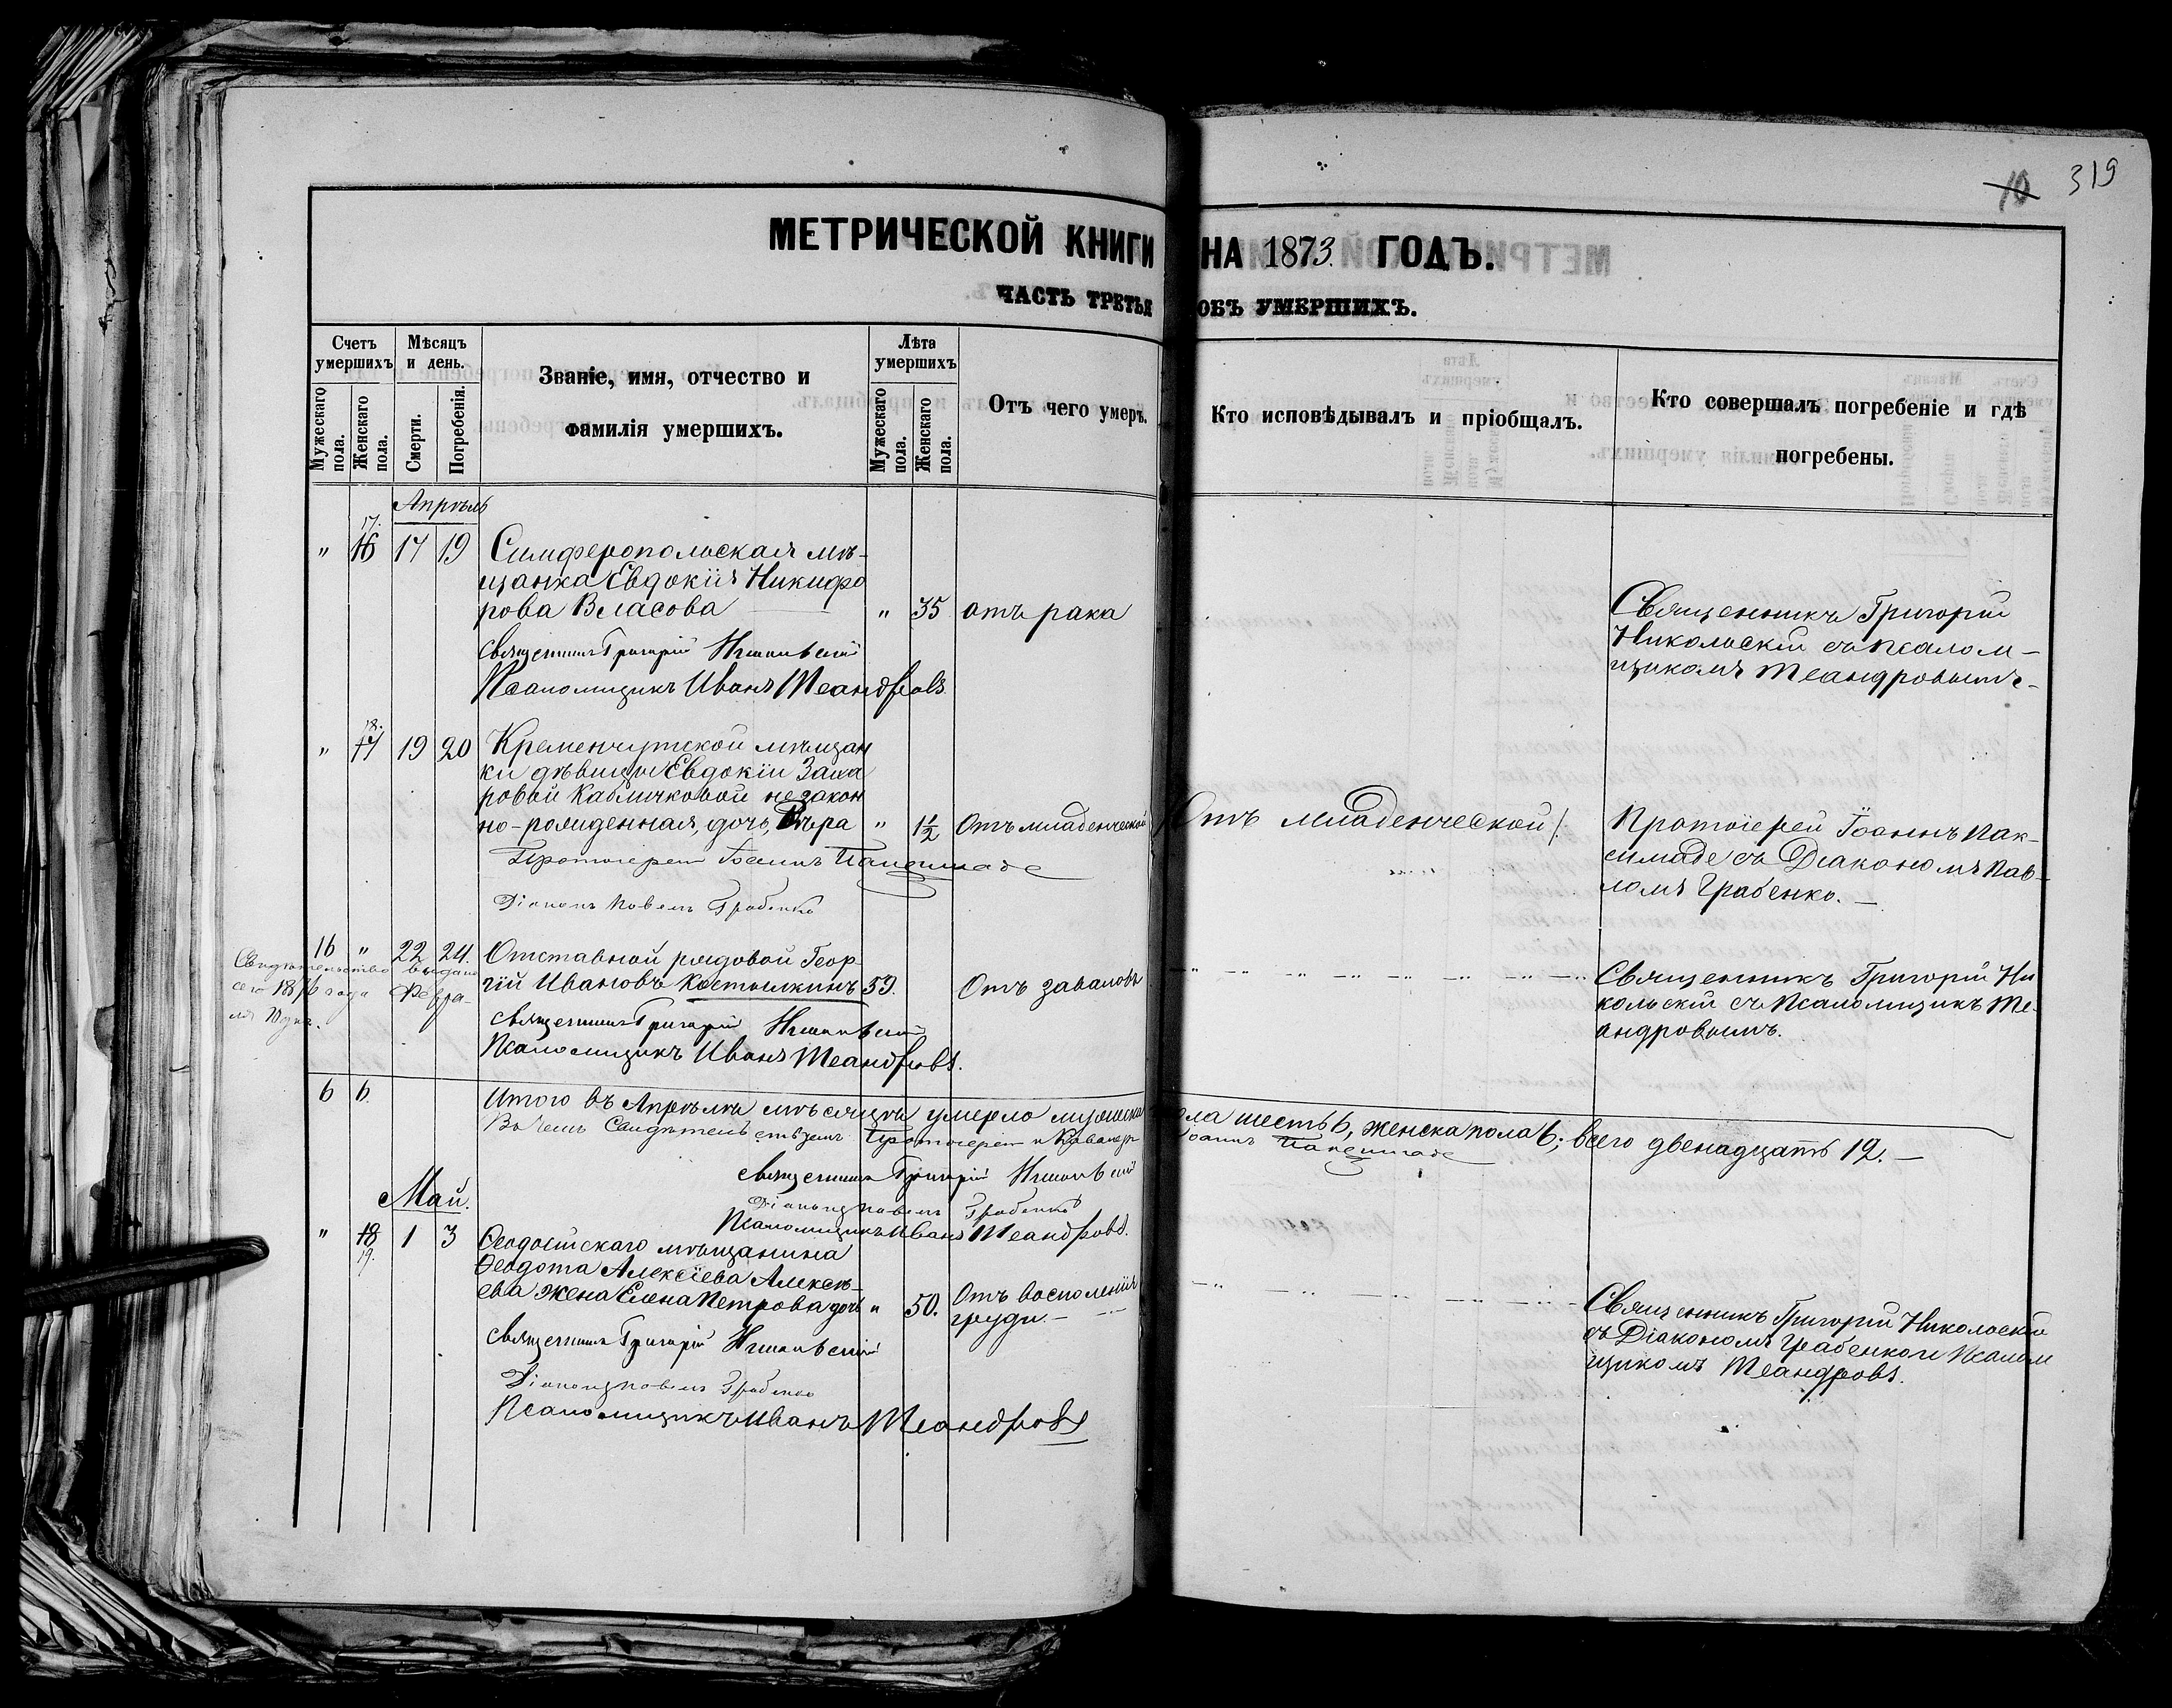 10 319
МЕТРИЧЕСКОЙ КНИГИ НА 1873. ГОДЪ.
ЧАСТЬ ТРЕТЬЯ ОБЪ УМЕРШИХЪ.
Счетъ умершихъ
Мужескаго пола.
Женскаго пола.
Мѣсяцъ и день.
Смерти.
Погребенія.
Званіе, имя, отчество и
фамилія умершихъ.
Лѣта умершихъ
Мужескаго пола.
Женскаго пола.
Отъ чего умеръ.
Кто исповѣдывалъ и пріобщалъ.
Кто совершалъ погребеніе и гдѣ
погребены.
Апрѣль
17.
" 16 17 19 Симферопольская мѣ-
щанка Евдокія Никифо
рова Власова " 35 отъ рака
Священникъ Григорій
Никольскій съ псалом-
щикомъ Меандровымъ-
Священникъ Григорій Никольскій
Псаломщикъ Иванъ Меандровъ
18.
" 17 19 20 Кременчугской мѣщан
ки дѣвицы Евдокіи Заха
ровой Кабличковой незакон
но-рожденная, дочь, Вѣра " 1½ Отъ младенческой
Отъ младенческой
Протоіерей Іоаннъ Пак-
симаде съ Діакономъ Пав-
ломъ Грабенко.—
Протоіерей Іоаннъ Паксимаде
Діаконъ Павелъ Грабенко
16 " 22 24. Отставной рядовой Геор-
гій Ивановъ Костылкинъ 59. Отъ заваловъ
Священникъ Григорій Ни
кольскій съ Псаломщикъ Ме-
андровымъ.
Свидѣтельство выдано
сего 1876 года Февра-
ля
Священникъ Григорій Никольскій
Псаломщикъ Иванъ Меандровъ.
6 6. Итого въ Апрѣлѣ мѣсяцѣ умерло мужеска пола шесть 6, женска пола 6; всего двенадцать 12.—
Въ чемъ Свидѣтельствуемъ Протоіерей и Кавалеръ Іоаннъ Паксимаде
Священникъ Григорій Никольскій
Діаконъ Павелъ Грабенко
Псаломщикъ Иванъ Меандровъ.
Май.
" 18 1 3 Ѳеодосійскаго мѣщанина
19.
Ѳеодота Алексіева Алексѣ-
ева жена Елена Петрова дочь " 50. Отъ воспаленія
груди.—
Священникъ Григорій Никольскій
съ Діакономъ Грабенко и Псалом
щикомъ Меандровъ.
Священникъ Григорій Никольскій
Діаконъ Павелъ Грабенко
Псаломщикъ Иванъ Меандровъ